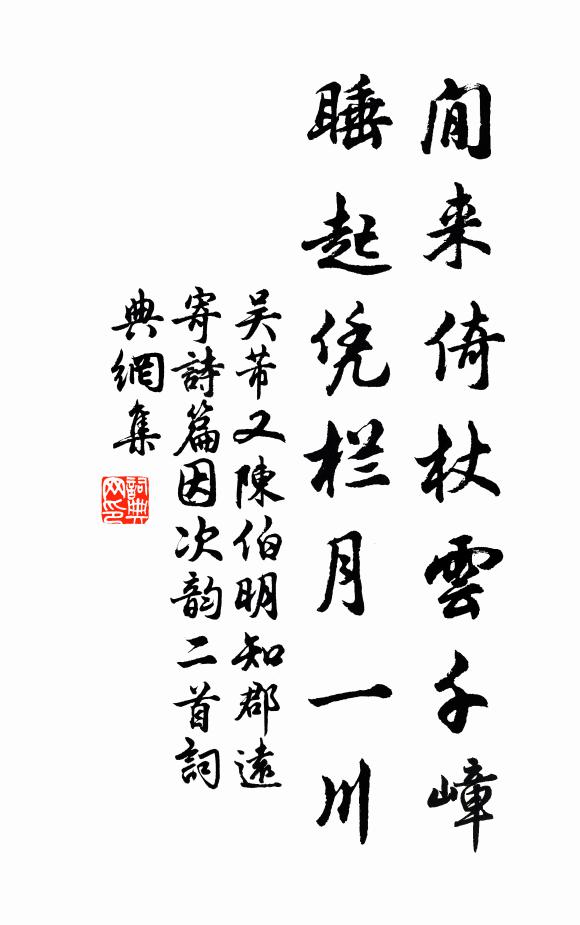 閒来倚杖雲千嶂
睡起凭栏月一川
吴芾又陳伯明知郡遠
寄詩篇因次韵二首詞
典網集
詞典网印